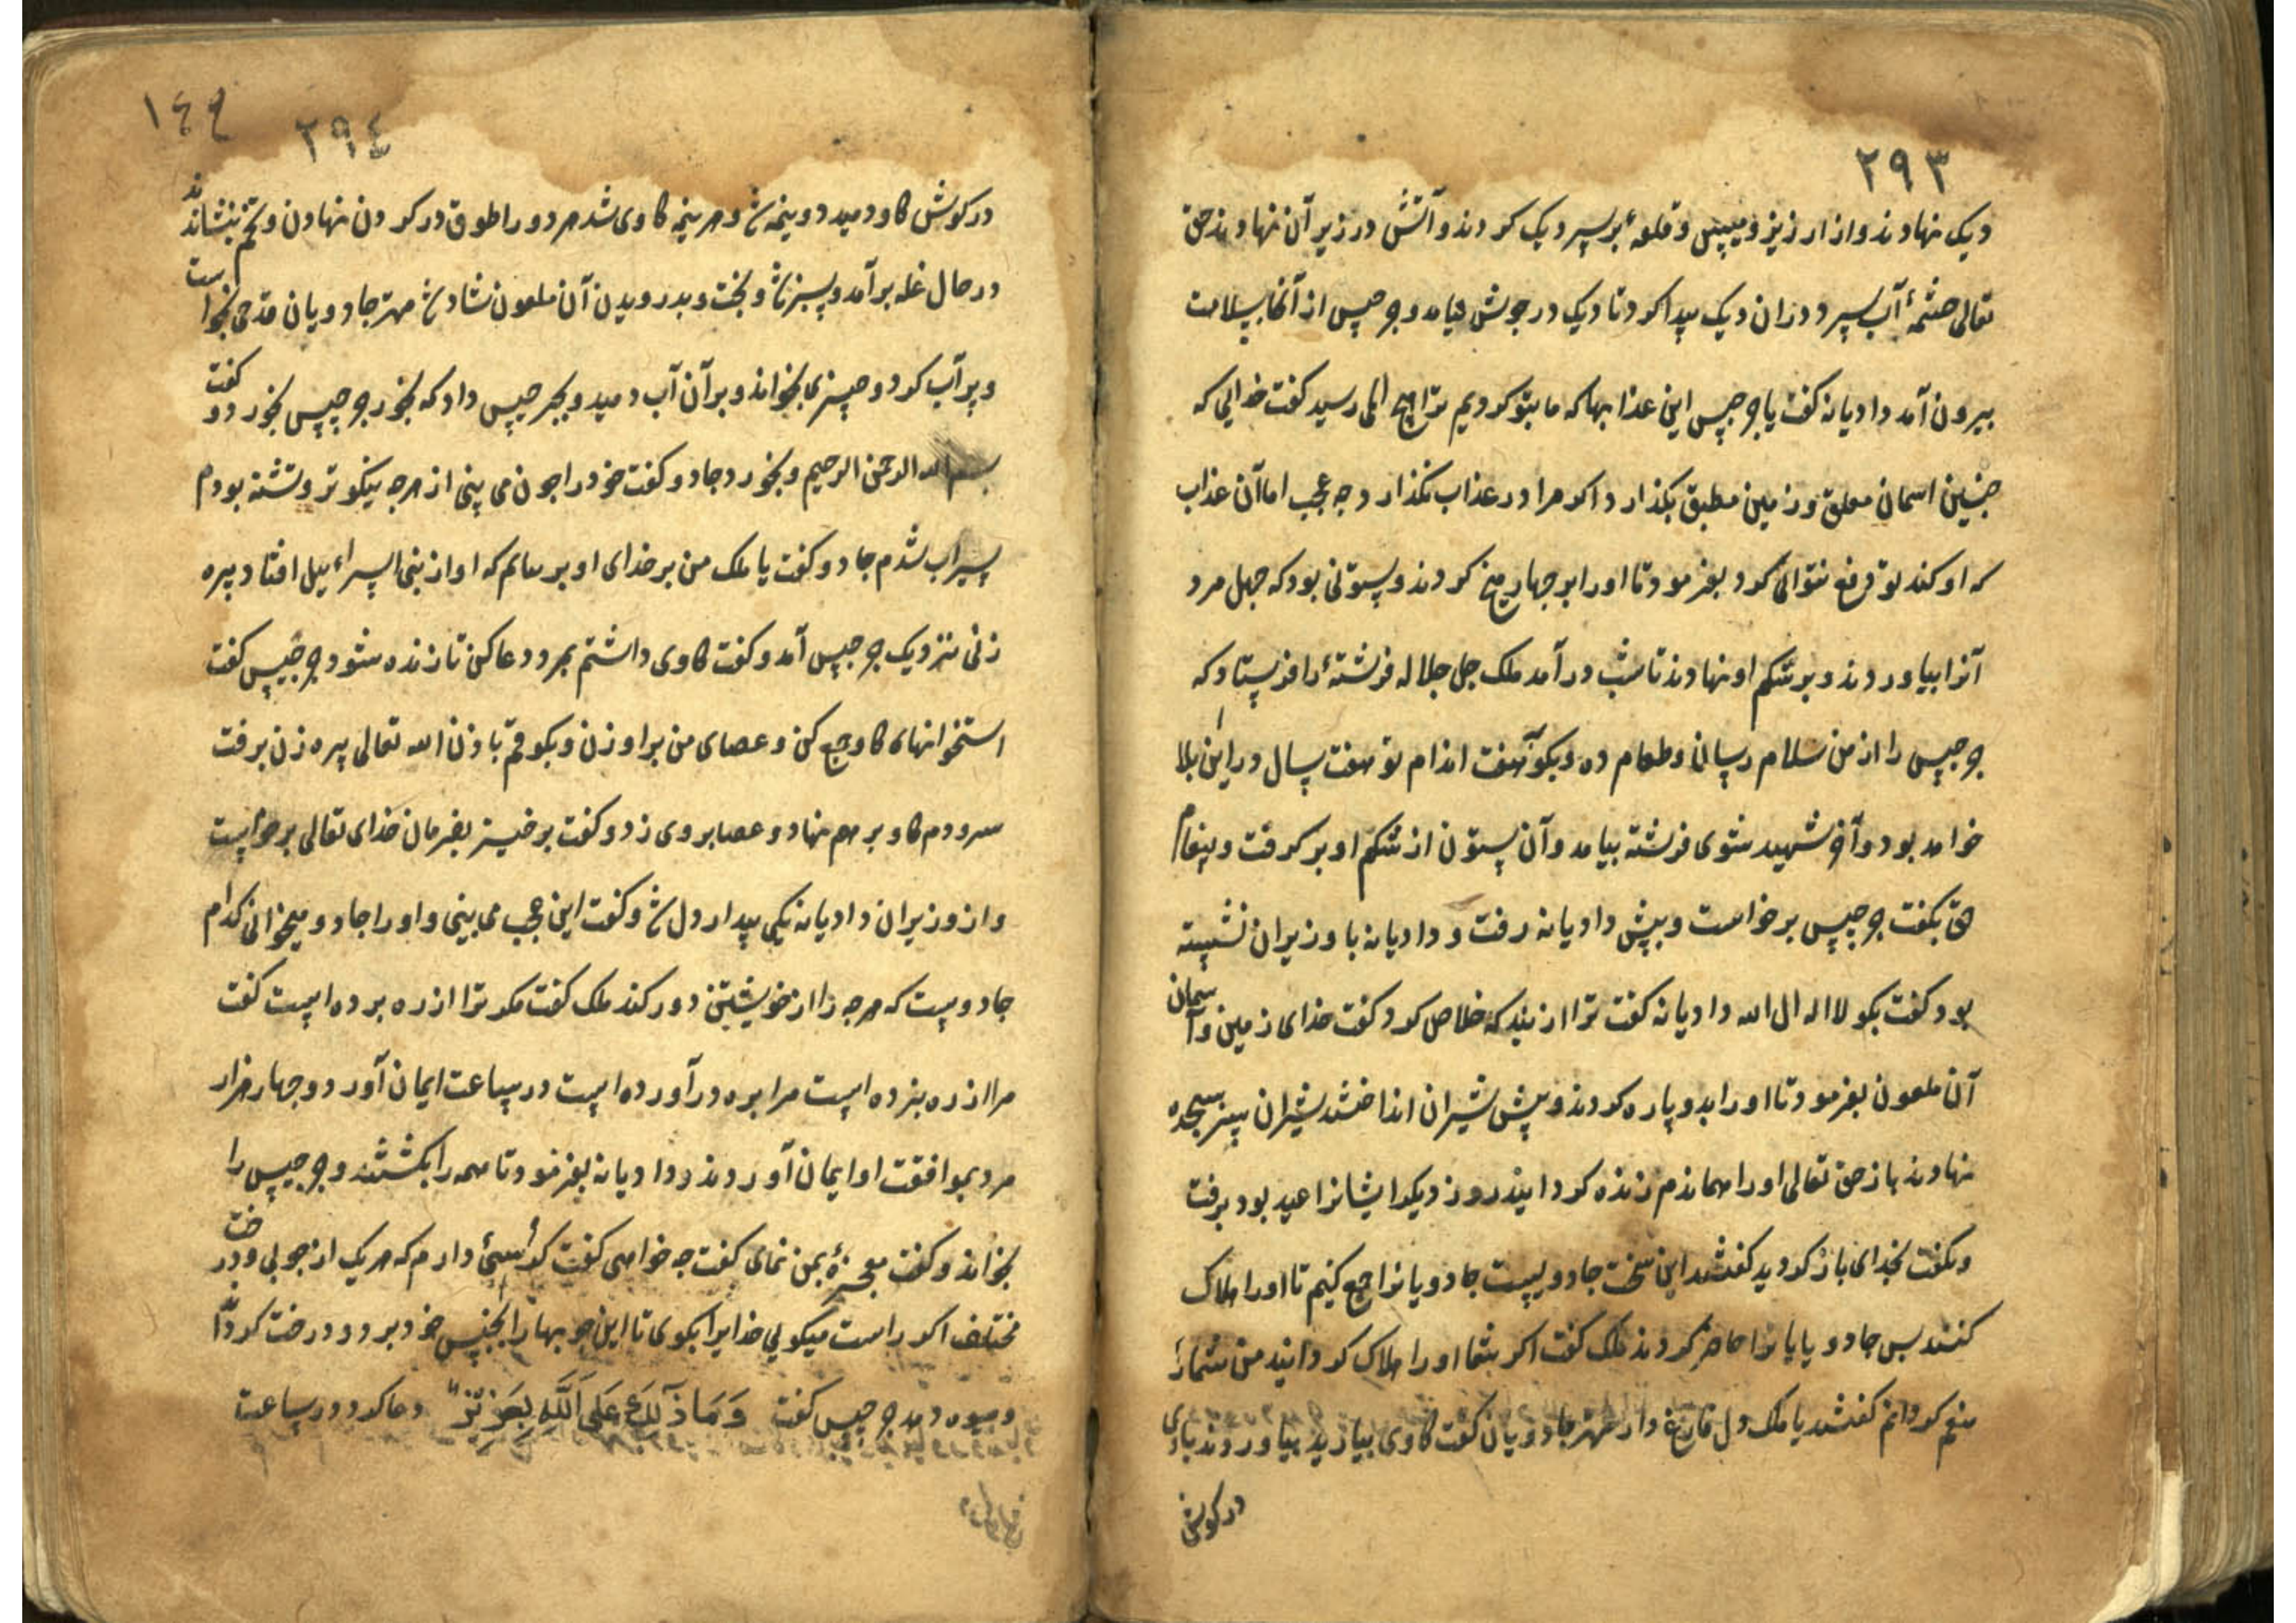 ۲۹۳
دیک نهادند و از ارزیز و میپس و قلعهٔ بر سر دیک کردند و آتش در زیر آن نهادند حق
تعالی چشمهٔ آب سرد دران دیک پیدا کرد تا دیک در جوش نیامد و جرجیس از آنجا بسلامت
بیرون آمد دادیانه کفت یا جرجیس این عذابها که ما بتو کردیم ترا هیچ المی رسید کفت خدایی که
چنین اسمان معلق و زمین مطبق بکذارد اکر مرا در عذاب نکذارد چه عجب اما آن عذاب
که او کند تو دفع نتوانی کرد بفرمود تا اورا بر چهار میخ کردند و ستونی بود که چهل مرد
آنرا بیاوردند و بر شکم او نهادند تا شب درآمد ملک جل جلاله فرشتهٔ را فرستاد که
جرجیس را از من سلام رسان و طعام ده و بکو هفت اندام تو هفت سال در این بلا
خواهد بود و آخر شهید شوی فرشته بیامد و آن ستون از شکم او بر کرفت و پیغام
حق بکفت جرجیس برخواست و پیش دادیانه رفت و دادیانه با وزیران نشسته
بود کفت بکو لا اله ال الله دادیانه کفت ترا از بند که خلاص کرد کفت خدای زمین و آسمان
آن ملعون بفرمود تا اورا بدو پاره کردند و پیش شیران انداختند شیران بسر سجده
نهادند باز حق تعالی اورا هماندم زنده کردانید روز دیکر ایشانرا عید بود برفت
و بکفت بخدای باز کردید کفتند این سخت جادوییست جادویانرا جمع کنیم تا اورا هلاک
کنند بس جادویانرا حاضر کردند ملک کفت اکر شما اورا هلاک کردانید من شمارا
منعم کردانم کفتند یا ملک دل فارغ دار مهتر جادویان کفت کاوی بیارید بیاوردند بادی
در کوش
۱٤۹
۲۹٤
در کوش کاو دمید دو نیمه شد و هر نیمه کاوی شد هر دو را طوق در کردن نهادن و تخم بنشاندند
در حال غله برآمد و سبز شد و پخت و بدرویدن آن ملعون شاد شد مهتر جادویان قدحی بخواست
و پر آب کرد و چیزی بخواند و بر آن آب دمید و بجرجیس داد که بخور جرجیس بخورد و کفت
بسم الله الرحمن الرحیم و بخورد جادو کفت خود را چون می بینی از هرچه نیکوتر و تشنه بودم
سیراب شدم جادو کفت یا ملک من بر خدای او بر نیایم که او از بنی اسراءیل افتاد پیره
زنی نزدیک جرجیس آمد و کفت کاوی داشتم بمرد دعا کن تا زنده شود جرجیس کفت
استخوانهای کاو جمع کن و عصای من بر او زن و بکو قم باذن الله تعالی پیره زن برفت
سر و دم کاو بر هم نهاد و عصا بر وی زد و کفت برخیز بفرمان خدای تعالی برخواست
و از وزیران دادیانه یکی بیدار دل شد و کفت این عجب می بینی و اورا جادو میخوانی کدام
جادوست که هرچه را از خویشتن دور کند ملک کفت مکر ترا از ره برده است کفت
مرا از ره نبرده است مرا بره درآورده است در ساعت ایمان آورد و چهار هزار
مرد بموافقت او ایمان آوردند دادیانه بفرمود تا همه را بکشتند و جرجیس را
بخواند و کفت معجزهٔ بمن نمای کفت چه خواهی کفت کرسئ دارم که هر یک از چوبی و درخت
مختلف اکر راست میکویی خدایرا بکوی تا این چوبها را بجنس خود برد و درخت کرداند
و میوه دهد جرجیس کفت وَمَا ذَلِكَ عَلَی اللَّهِ بِعَزِیزٍ دعا کرد در ساعت